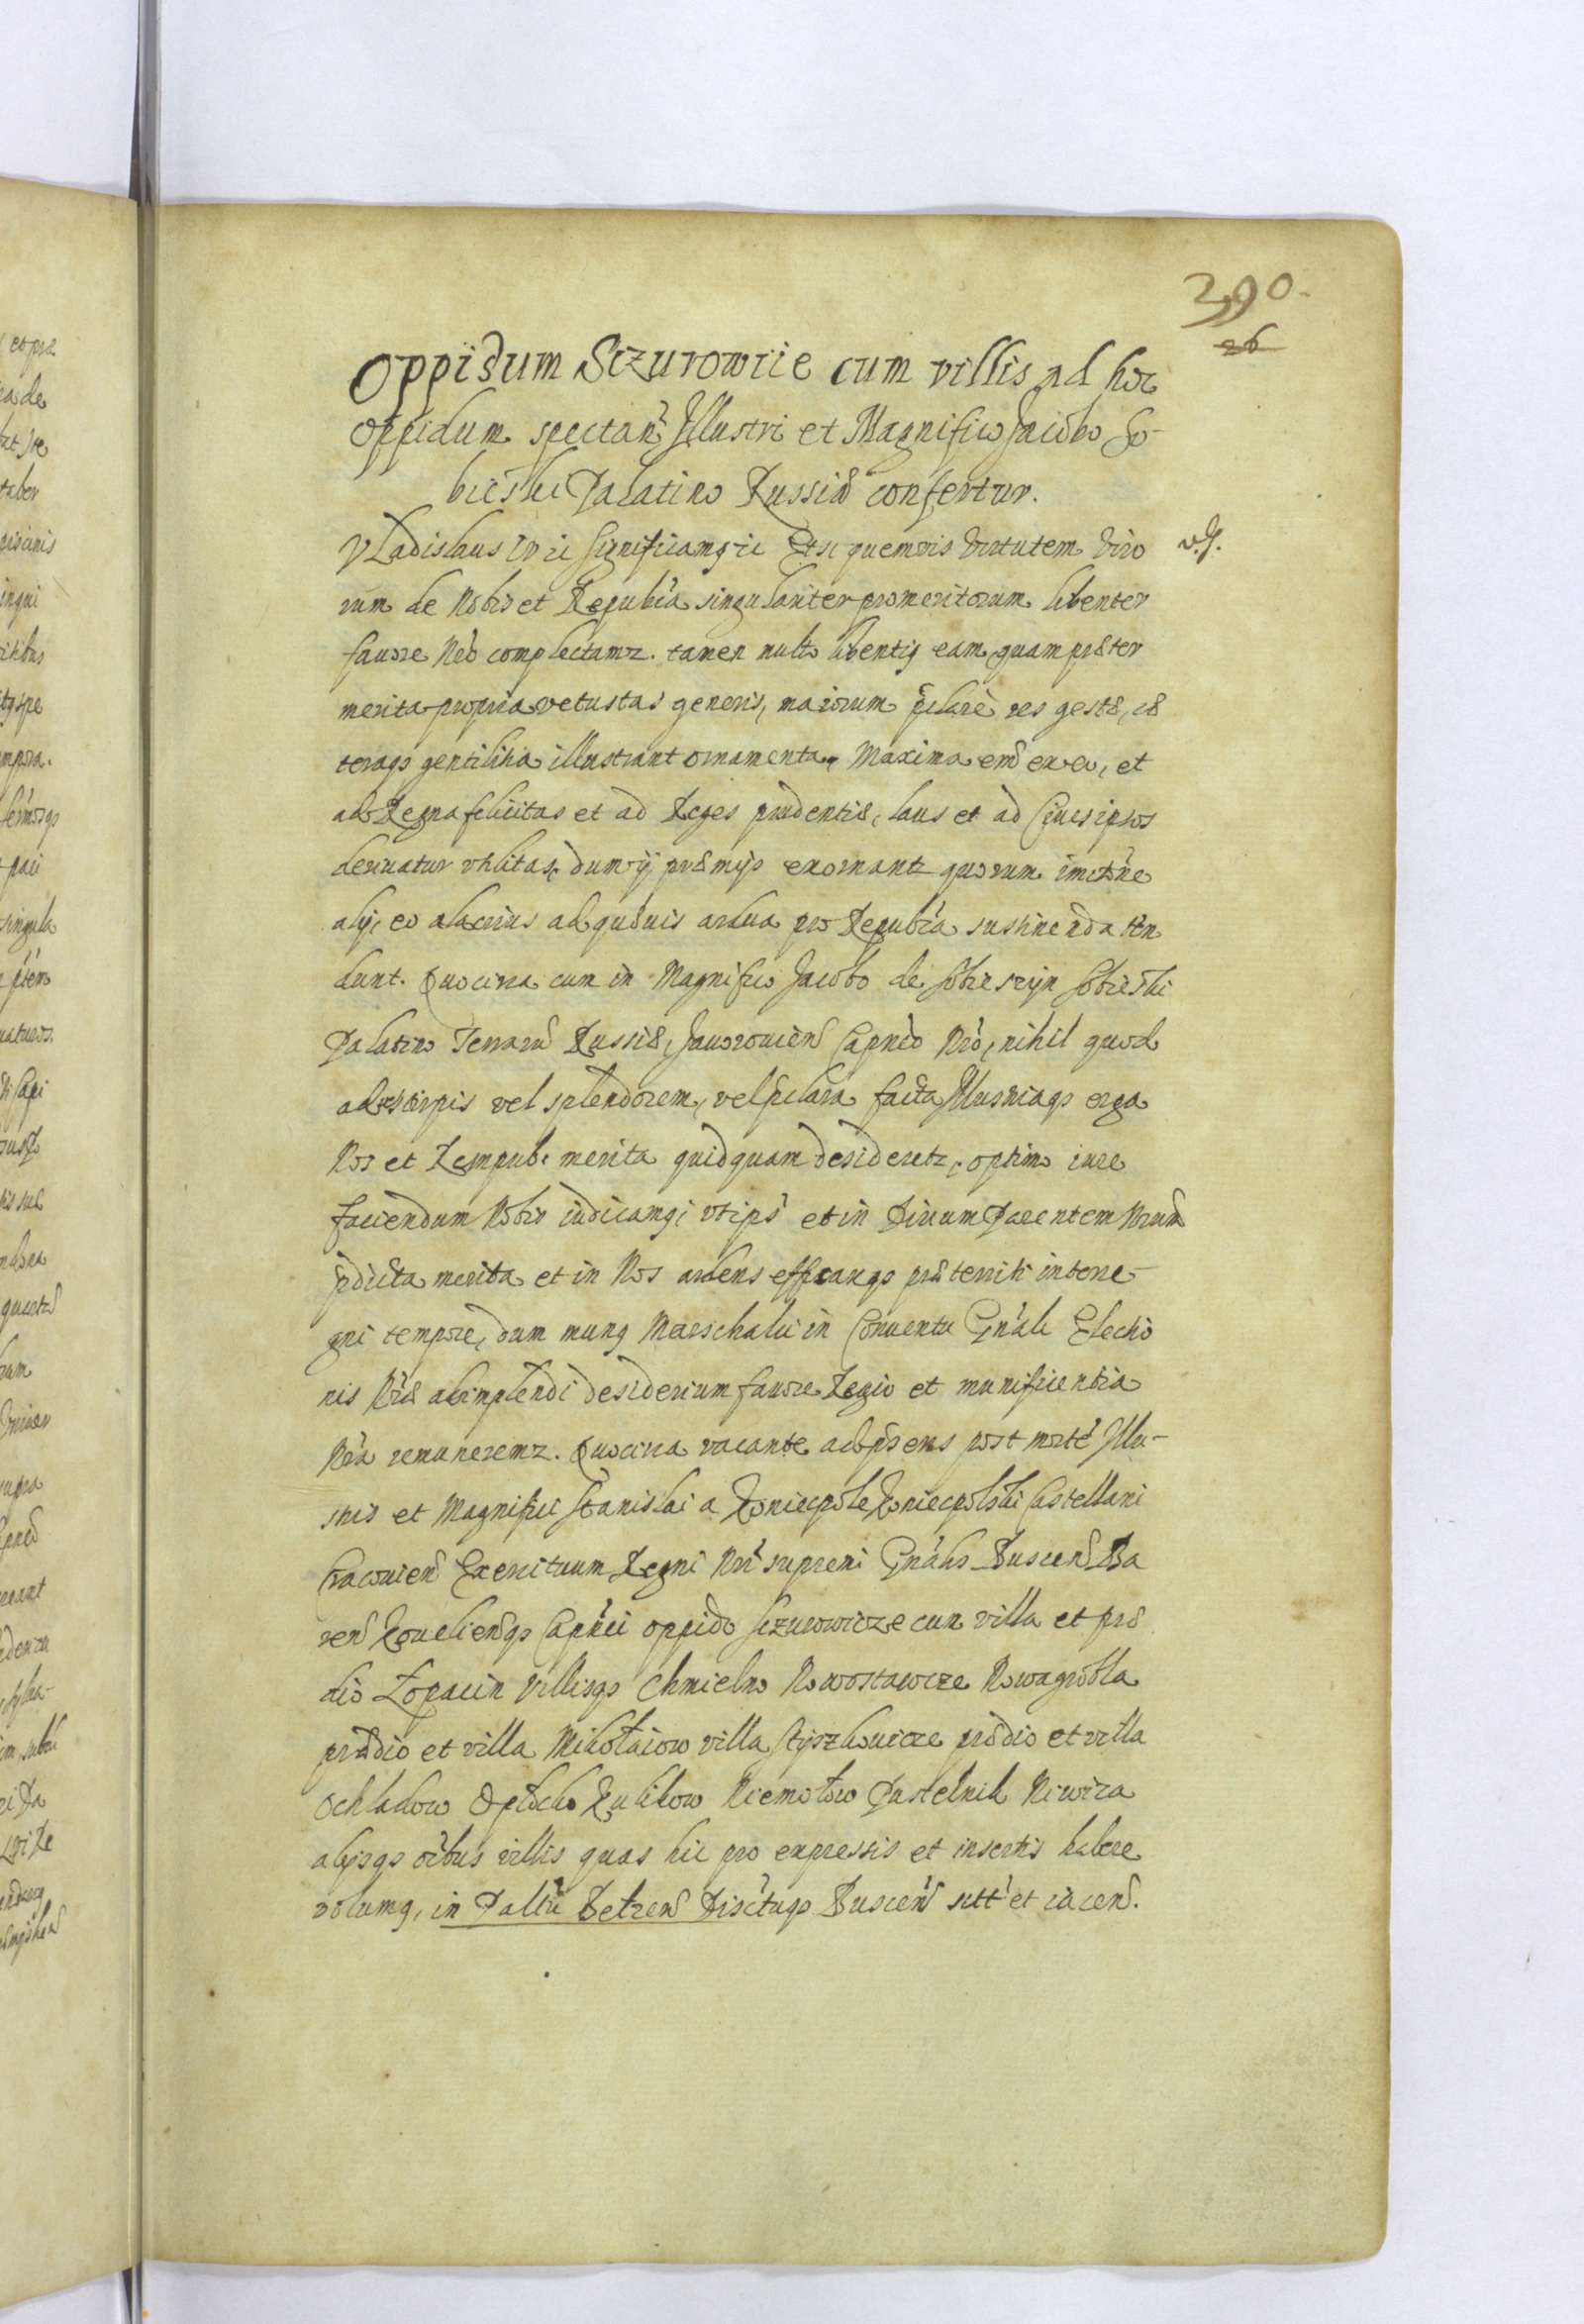 390.
26
Oppidum Sczurowice cum villis ad hoc
oppidum spectan̄ Illustri et Magnifico Jacobo So-
bieski Palatino Russiæ confertur.
Vladislaus IV ic significamꝯ ic Etsi quemvis virtutem viro
v.s.
rum de Nobis et Repub̄ca singulariter promeritorum libenter
favore Nr̄o complectamr. tamen multo libentiꝯ eam quam præter
merita propria vetustas generis, maiorum p̄clarè res gestæ, cæ
teraqꝫ gentilitia illustrant ornamenta. Maxima em̄ ex eo, et
ad Regna felicitas et ad Reges prudentiæ, laus et ad Cives ipsos
derivatur utilitas, dum ij præmijs exornantr quorum imit̄one
alij, eo alacrius ad quævis ardua pro Repub̄ca sustinenda ten
dunt. Quocirca cum in Magnifico Jacobo de Sobieszyn Sobieski
Palatino Terrarū Russiæ, Javoroviens̄ Capn̄eo Nr̄o, nihil quod
ad stirpis vel splendorem, vel p̄clara facta Illustriaqꝫ erga
Nos et Rempub. merita quidquam desideretr, optimo iure
faciendum Nobis iudicamꝯ, ut ips̄ et in Divum Parentem Nrūm
p̄dicta merita et in Nos ardens efficaxqꝫ præteriti interre-
gni tempore, dum munꝯ Mareschalci in Conventu Gn̄ali Electio
nis Nr̄æ adimplendi desiderium favore Regio et munificentia
Nr̄a remuneremr. Quocirca vacante ad p̄sens post mortē Illu-
stris et Magnifici Stanislai a Koniecpole Koniecpolski Castellani
Cracovien̄ Exercituum Regni Nr̄i supremi Gn̄alis Buscen̄ Ba
ren̄ Kovelien̄qꝫ Capn̄ei oppido Sczurowicze cum villa et præ
dio Łopatin villisqꝫ Chmielno Nowostawcze Nowagrobla
prædio et villa Mikołaiow villa Stryszkowicze prædio et villa
Ochladow Opłocko Kulikow Niemiłow Pustelnik Niwica
alijsqꝫ oībus villis quas hic pro expressis et insertis habere
volumꝯ, in Pall̄tu Belzen̄ Disct̄uqꝫ Buscen̄ sitt̄ et iacen̄.